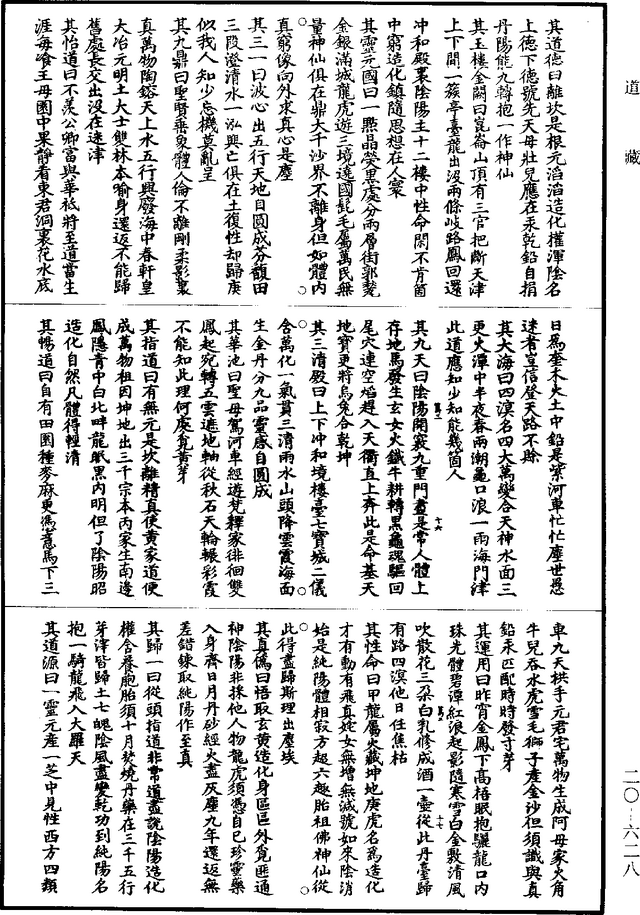 道藏
二〇·六二八
其道德曰離坎是根元滔滔造化權渾陰名
上德下德號先天母壯兒應在汞乾鉛自捐
丹陽能九轉抱一作神仙
其玉樓金闕曰崑崙山頂有三官把斷天津
上下關一簇亭臺龍出沒兩條岐路鳳回還
冲和殿裏陰陽主十二樓中性命閑不肯箇
中窮造化鎮隨思想在人寰
其靈元國曰一點晶熒黑處分兩層街郭
金銀滿城龍虎遊三境遶國髭毛屬萬民無
量神仙俱在鼎大千沙界不離身但如體內
真窮像向外求真心是塵
其三一曰波心出五行天地日圓成分馥田
三段澄清水一泓興亡俱在土復性却歸庚
似我人知少忘機莫亂呈
其九鼎曰聖賢垂象體人倫不離剛柔影裏
真萬物陶鎔天上水五行興廢海中春軒皇
大冶元明土大士雙林本喻身還返不能歸
舊處長交出沒在迷津
其怡道曰不羨公卿富與華祗將至道當生
涯每飡王母園中果靜看東君洞裏花水底
日為奎木火土中鉛是紫河車忙忙塵世愚
迷者豈信登天路不賒
其大海曰四溟名四大萬變合天神水面三
更火潭中半夜春兩潮龜口浪一雨海門津
此道應知少知能幾箇人
其九天曰陰陽開竅九重門盡是常人體上
存地馬發生玄女火鐵牛耕轉黑龜魂驅回
尾穴連空焰趕入天衢直上奔此是命基天
地寶更將烏兔合乾坤
其三清殿曰上下冲和境樓臺七寶城二儀
含萬化一氣貫三清雨水山頭降雲霞海面
生金丹分九品靈感自圓成
其華池曰聖母駕河車經遊梵釋家徘徊雙
鳳起宛轉五雲遮地軸從秋石天輪輾彩霞
不能知此理何處覓黃芽
其指道曰有無元是坎離精真使黃家道便
成萬物祖因坤地出三千宗本丙家生南邊
鳳隱青中白北畔龍眠黑內明但了陰陽昭
造化自然凡體得輕清
其暢道曰自有田園種麥麻更馮意馬下三
車九天拱手元君宅萬物生成阿母家火角
牛兒吞水虎雪毛獅子產金沙但須識與真
鉛汞匹配時時發寸芽
其運用曰昨宵金鳳下高梧眠抱驪龍口內
珠光體碧潭紅浪起影隨寒雪白金敷清風
吹散花三朵白乳修成酒一壺從此丹臺歸
有路四溟他日任焦枯
其性命曰甲龍屬火藏坤地庚虎名為造化
才有動有飛真姹女無增無減號如來陰消
始是純陽體相寂方超六趣胎祖佛神仙從
此得盡歸斯理出塵埃
其真偽曰悟取玄黃造化身區區外覓匪通
神陰陽非採他人物龍虎須憑自己珍靈藥
入身齊日月丹砂經火盡灰塵九年還返無
差錯鍊取純陽作至真
其歸一曰從頭指道非常道盡說陰陽造化
權含養胞胎須十月焚燒丹藥在三千五行
芽滓皆歸土七魄陰風盡變乾功到純陽名
抱一騎龍飛入大羅天
其道源曰一靈元產一芝中見性西方四類